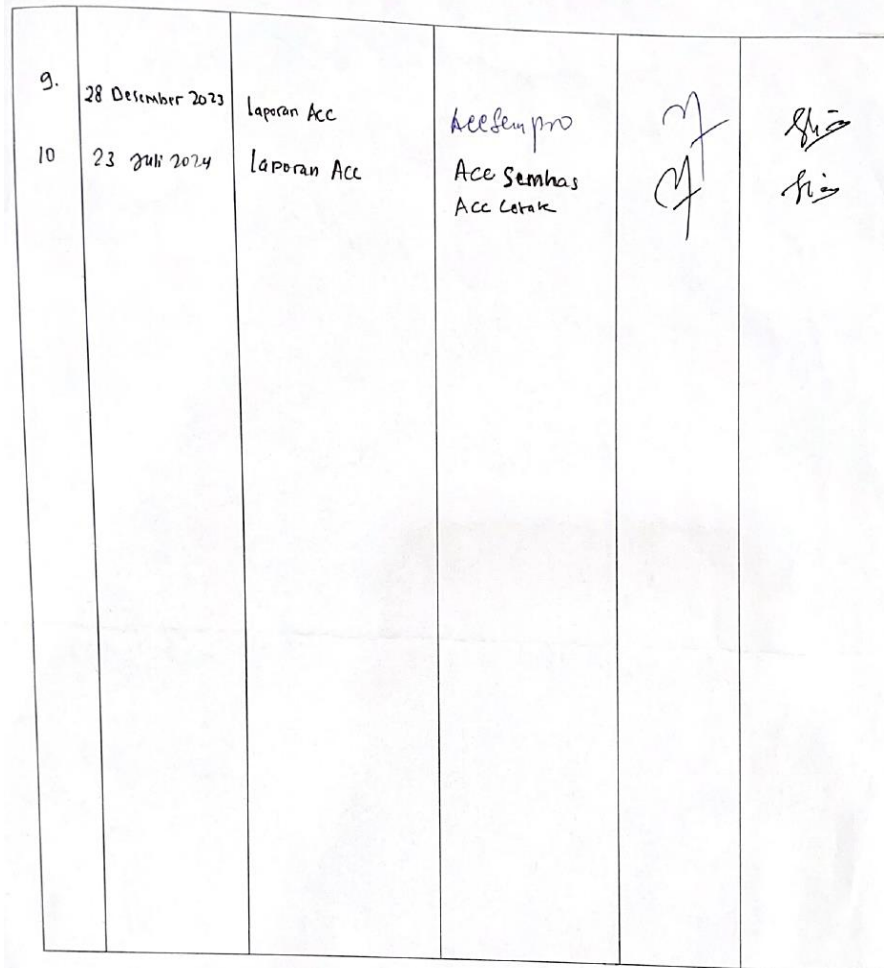 9. 28 Desember 2023 Laporan Acc Acc Sempro
10 23 Juli 2024 Laporan Acc Acc Semhas
Acc Cetak